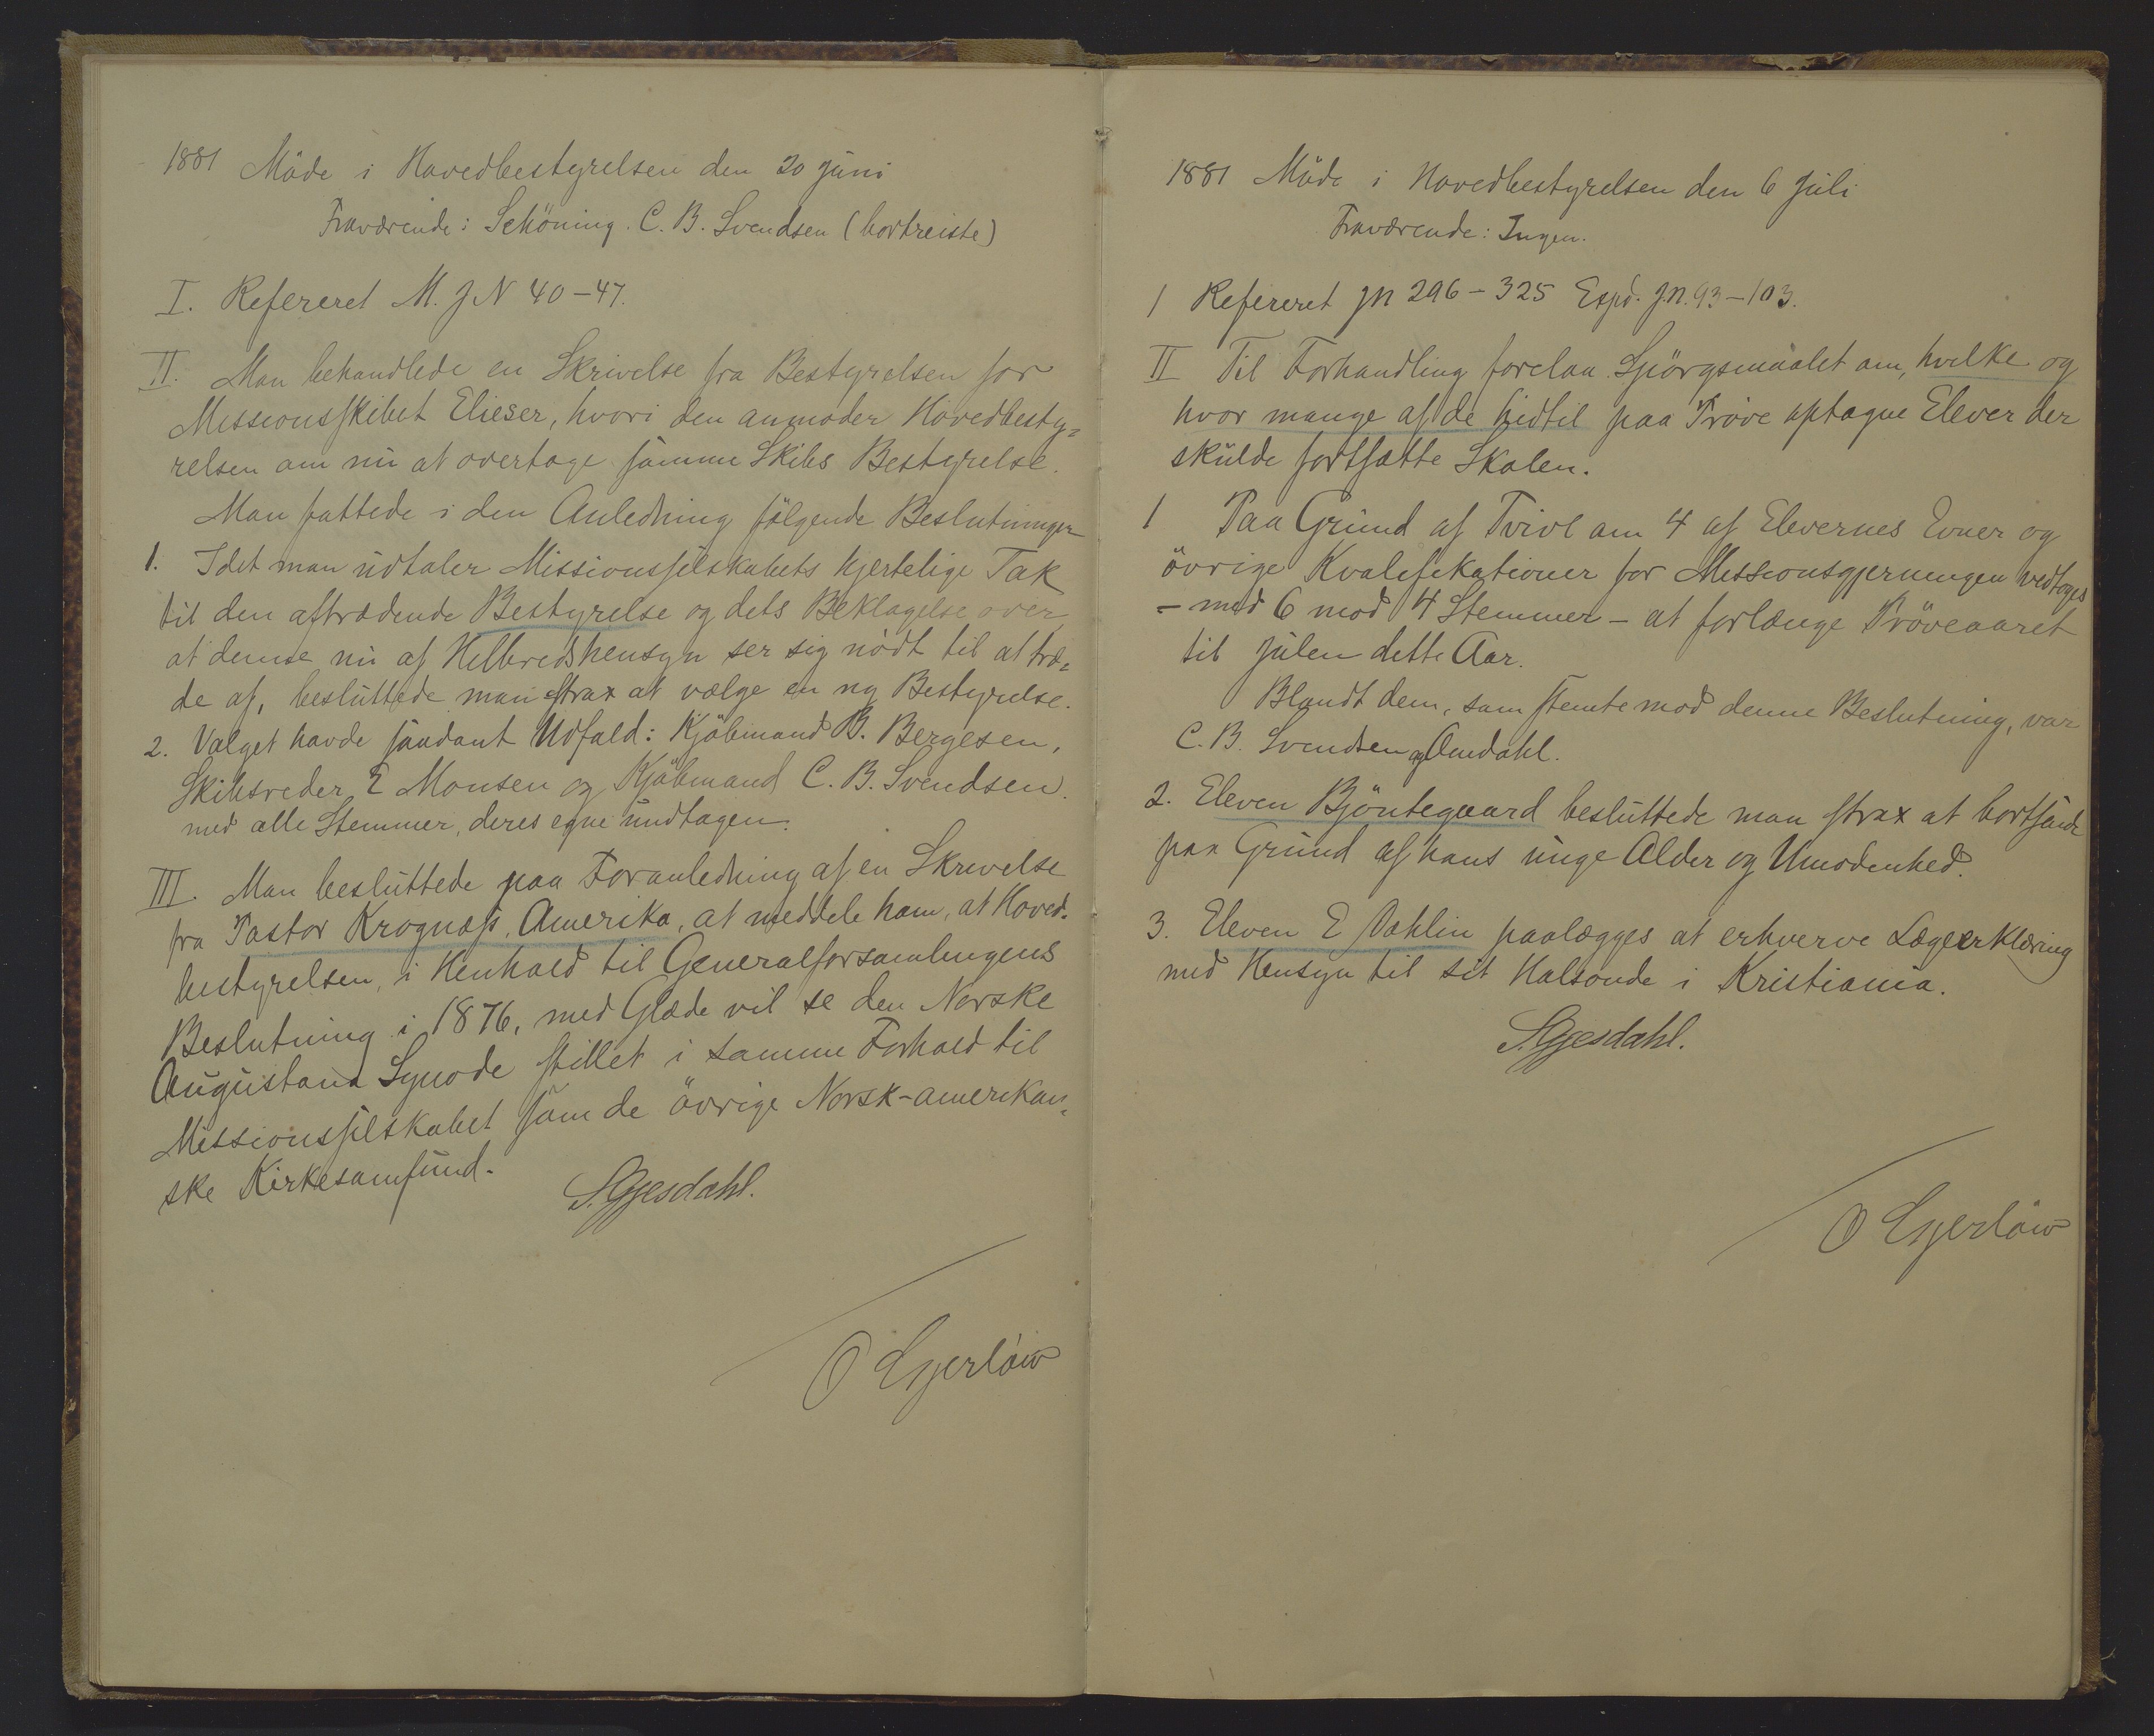 1881 Möde i Hovedbestyrelsen den 20 juni
Fraværende: Schöning. C. B. Svendsen (bortreiste)
I. Refereret M. J N 40-47.
II. Man behandlede en Skrivelse fra Bestyrelsen for
Missionsskibet Elieser, hvori den anmoder Hovedbesty=
relsen om nu at overtage samme Skibs Bestyrelse.
Man fattede i den Anledning følgende Beslutninger
1. Idet man udtaler Missionsselskabets hjertelige Tak
til den aftrædende Bestyrelse og dets Beklagelse over,
at denne nu af Helbredshensyn ser sig nödt til at træ=
de af, besluttede man strax at vælge en ny Bestyrelse.
2. Valget havde saadant Udfald: Kjöbmand B. Bergesen,
Skibsreder E Monsen og Kjöbmand C. B. Svendsen.
med alle Stemmer, deres egne undtagen.
III. Man besluttede paa Foranledning af en Skrivelse
fra Pastor Krognæs, Amerika, at meddele ham, at Hoved=
bestyrelsen, i Henhold til Generalforsamlingens
Beslutning i 1876, med Glæde vil se den Norske
Augustana Synode stillet i samme Forhold til
Missionsselskabet som de övrige Norsk-amerikan=
ske Kirkesamfund.
S. Gjesdahl.
O Gjerløw
1881 Möde i Hovedbestyrelsen den 6 Juli
Fraværende: Ingen.
I Refereret JN 296-325 Expd. J.N. 93-103.
II Til Forhandling forelaa Spörgsmaalet om, hvilke og
hvor mange af de hidtil paa Pröve optagne Elever der
skulde fortsætte Skolen.
1 Paa Grund af Tvivl om 4 af Elevernes Evner og
övrige Kvalifikationer for Missionsgjerningen vedtoges
- med 6 mod 4 Stemmer - at forlænge Pröveaaret
til Julen dette Aar.
Blandt dem, som stemte mod denne Beslutning, var
C. B. Svendsen og Omdahl.
2. Eleven Bjöntegaard besluttede man strax at bortsende
paa Grund af hans unge Alder og Umodenhed.
3. Eleven E Dahlin paalægges at erhverve Lægeerklæring
med Hensyn til sit Halsonde i Kristiania.
S. Gjesdahl.
O Gjerløw